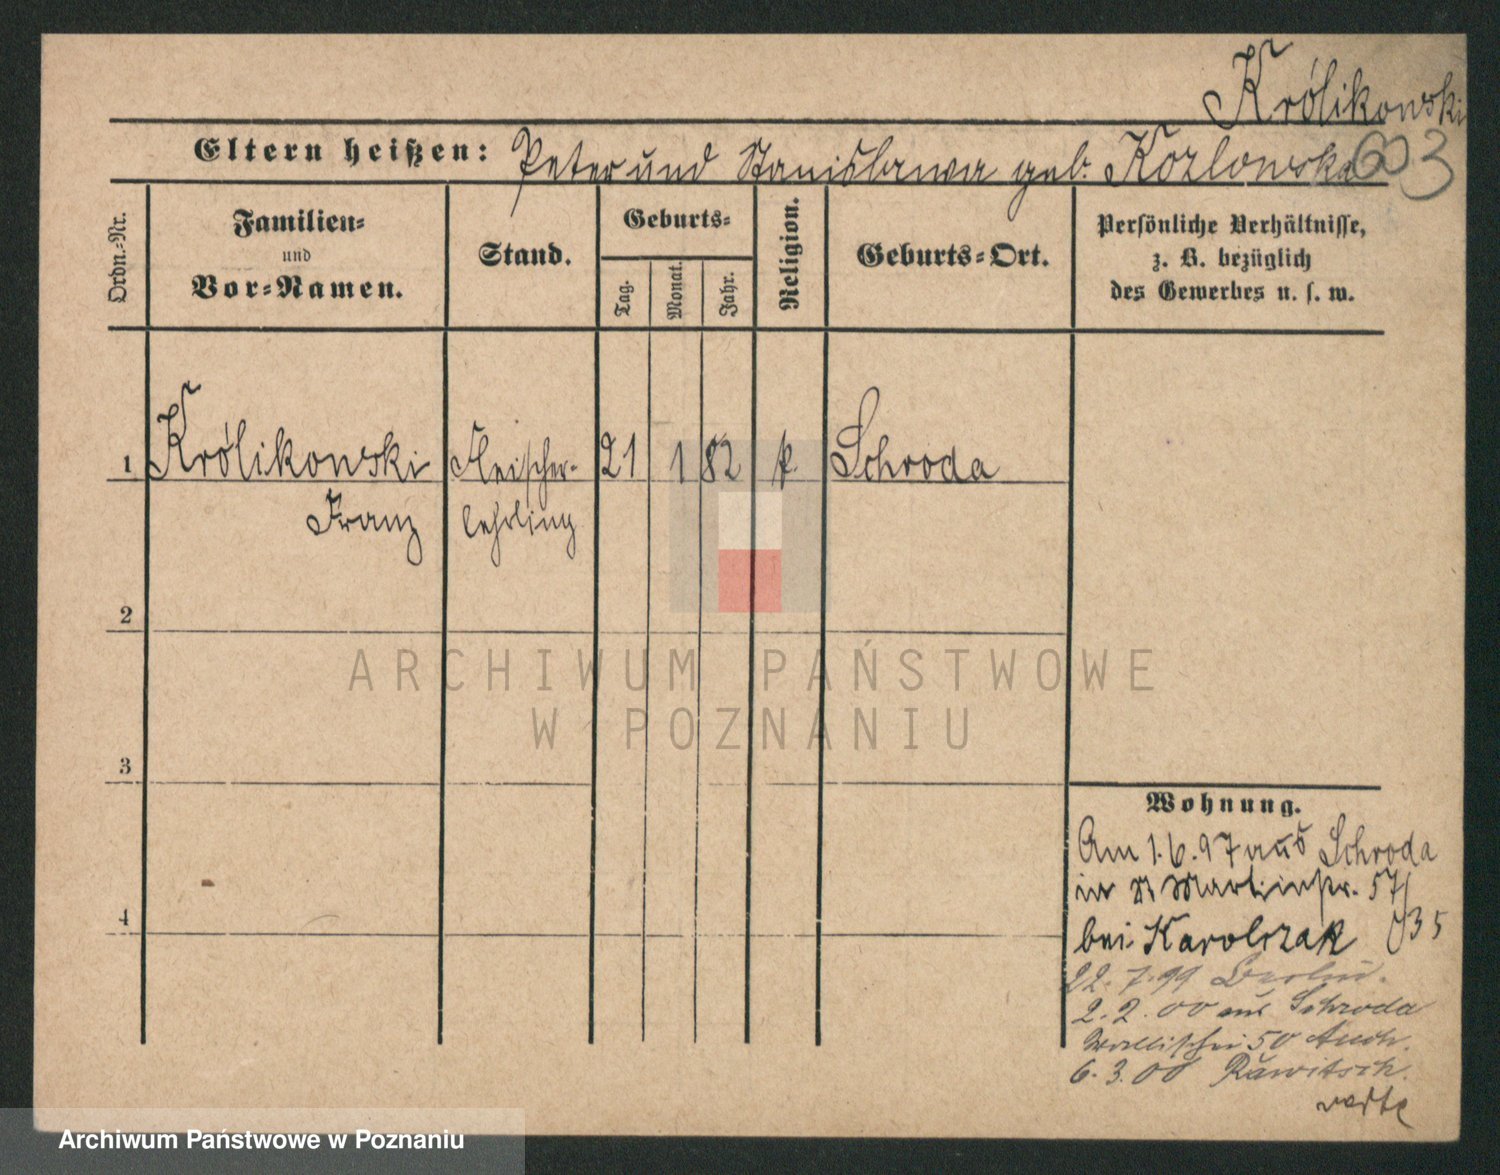 Królikowski
Eltern heißen: Peter und Stanislawa geb. Kozlowska
603
Ordn.-Nr.
Familien-
und
Vor-Namen.
Stand.
Geburts-
Tag.
Monat.
Jahr.
Religion.
Geburts-Ort.
Persönliche Verhältnisse,
z. B. bezüglich
des Gewerbes u. s. w.
1 Królikowski Fleischer- 21 1 82 k. Schroda
Franz lehrling
2
3
4
Wohnung.
Am 1.6.97 aus Schroda
in St Martinstr. 57/
bei Karolczak 35
22.7.99
2.2.00 aus Schroda
Wallischei 50
6.3.00 Rawitsch.
ARCHIWUM PAŃSTWOWE
W POZNANIU
Archiwum Państwowe w Poznaniu